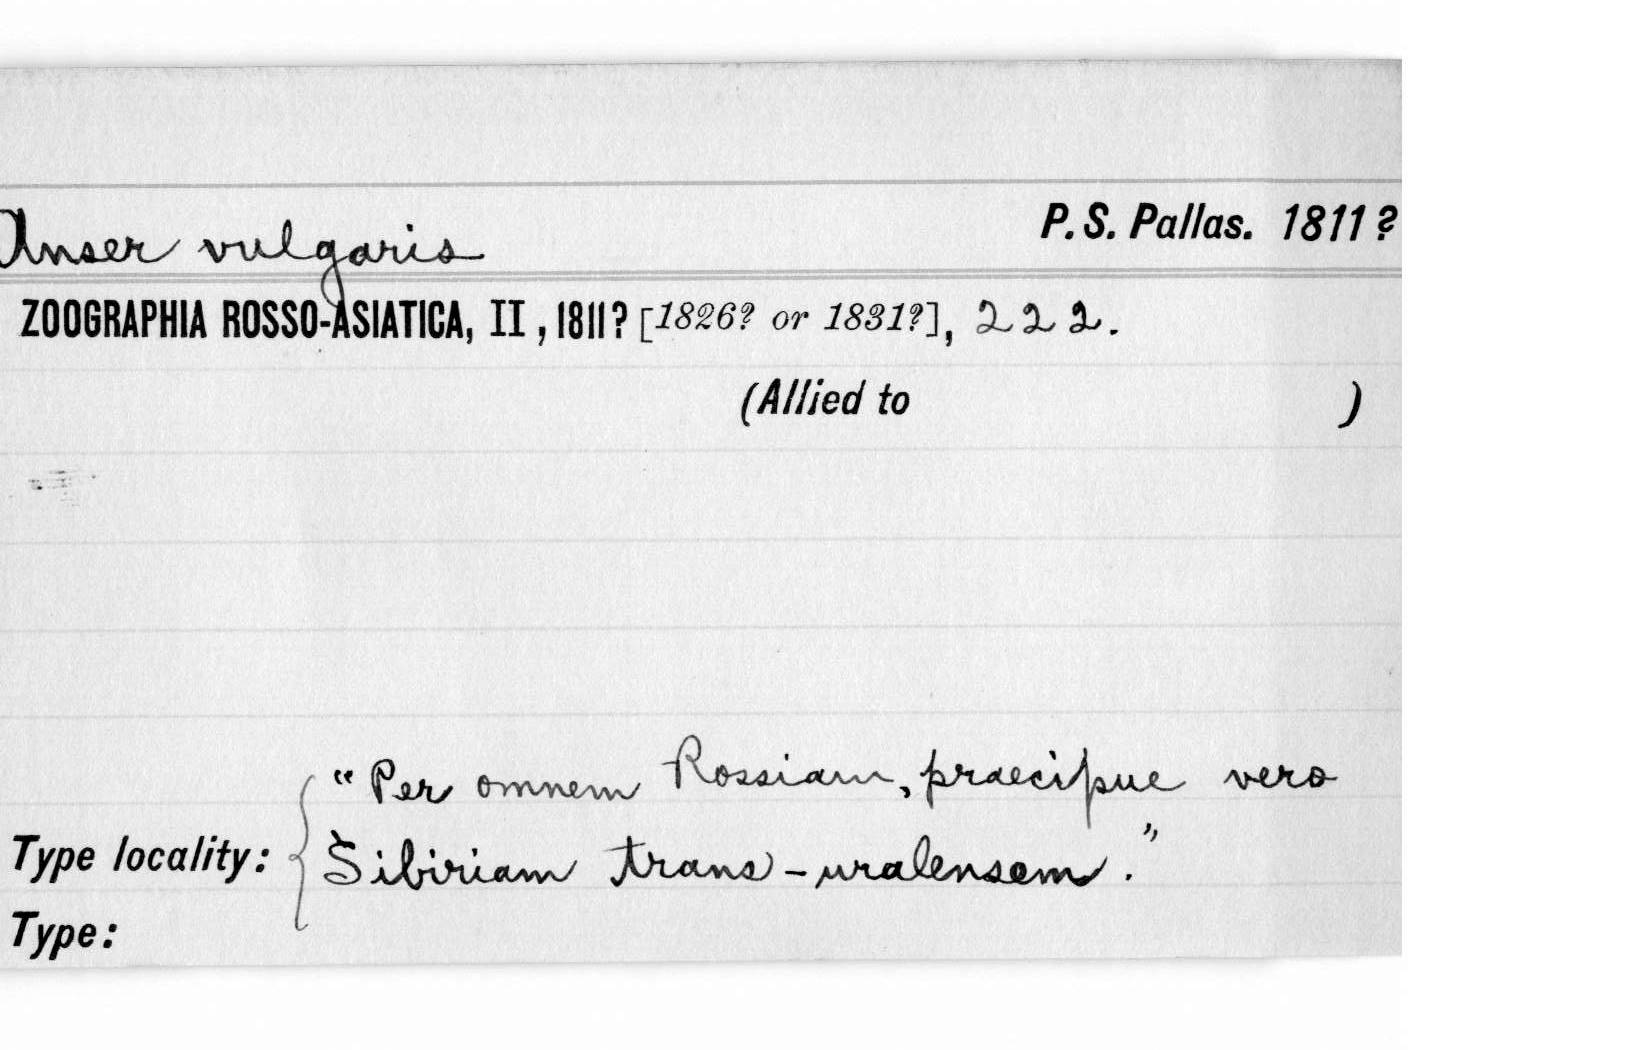 Anser vulgaris P. S. Pallas. 1811?
ZOOGRAPHIA ROSSO-ASIATICA, II, 1811? [1826? or 1831?], 222.
(Allied to )
"Per omnem Rossiam, praecipue vero
Type locality: Sibiriam trans-uralensem."
Type: